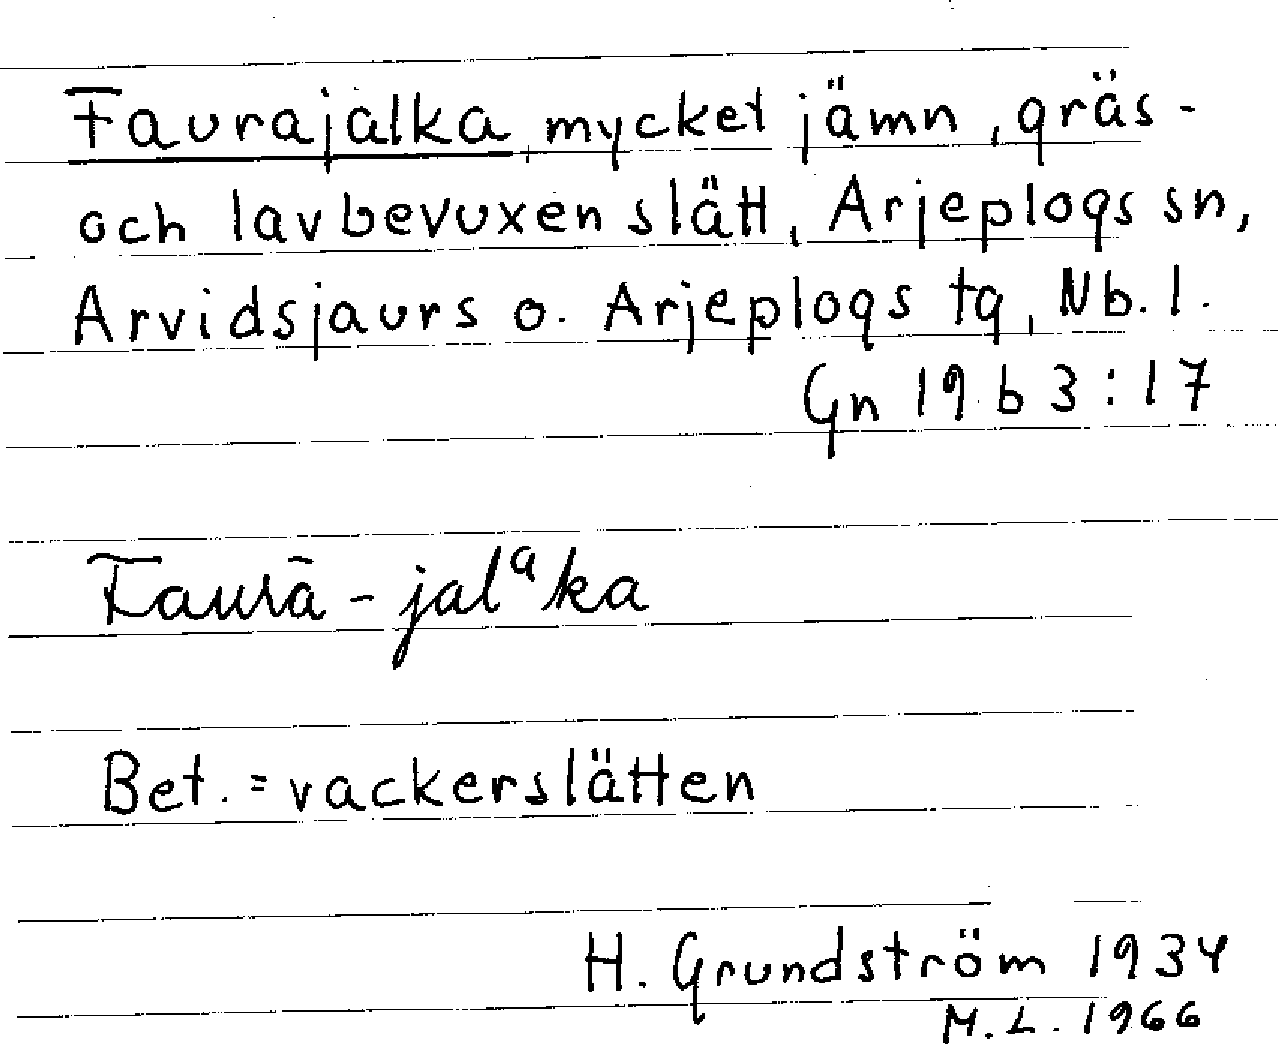 Faurajalka, mycket jämn, gräs-
och lavbevuxen slätt, Arjeplogs sn,
Arvidsjaurs o. Arjeplogs tg, Nb. l.
Gn 19 b 3:17
Faurā-jalᵃka
Bet. = vackerslätten
H. Grundström 1934
M.L. 1966